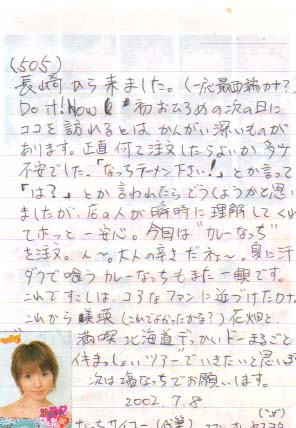 (505)
長崎から来ました。(一応最西端かナ?)
Do it! Now 初おひろめの次の日に
ココを訪れるとは、かんがい深いものが
あります。正直何て注文したらよいか多少
不安でした。「なっちラーメン下さい!」とか言って
「は?」とか言われたらどうしようかと思い
ましたが、店の人が瞬時に理解してくれ
てホッと一安心。今回は"カレーなっち"
を注文。ん〜。大人の辛さだネェ〜。夏に汗
ダクで喰うカレーなっちもまた一興です。
これですこしは、コアなファンに近づけたカナ。
これから美瑛(これでよかったかな?)花畑と、
満喫 北海道でっかいどーまるごと
休まっしょいツアーでいきたいと思います
次は塩なっちでお願いします。
2002.7.8
なっちサイコー